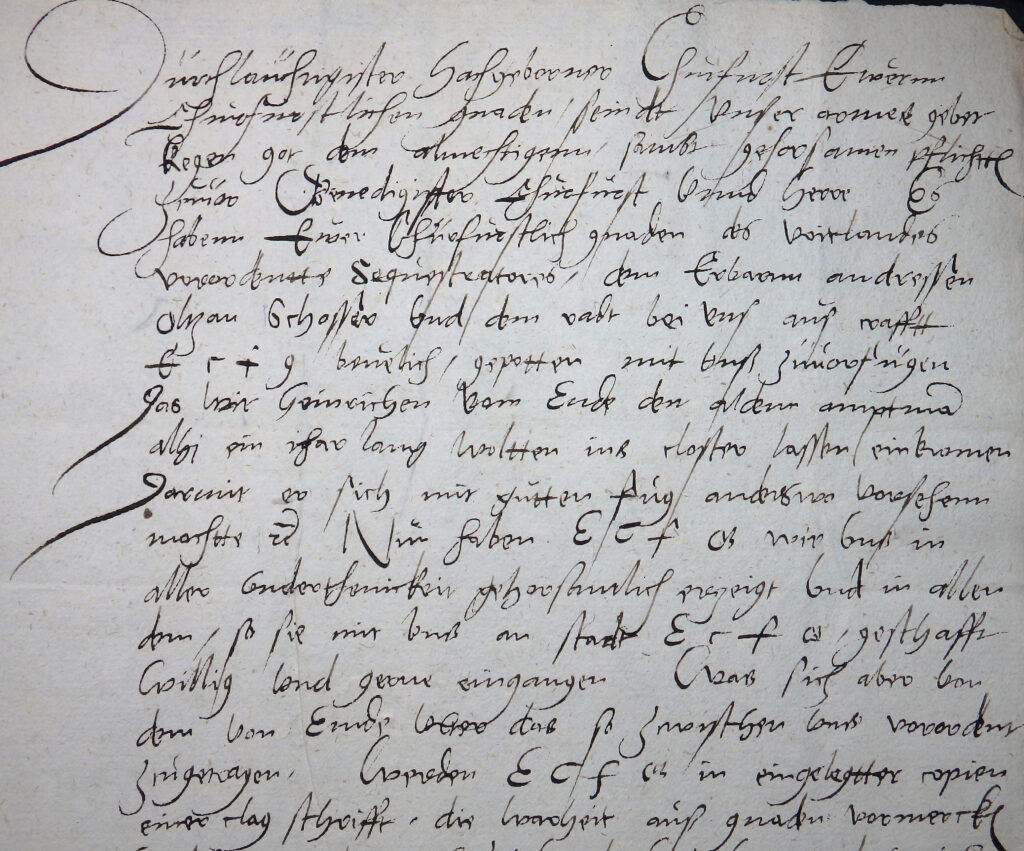 Durchlauchtigister Hochgeborner Churfurst Ewernn
Churfurstlichen gnaden / seindt Unser armes gebet
kegen got dem almechtigenn / sambt gehorsamen pflichtenn
zuuor Genedigister Churfurst Vnnd Herre Es
habenn Ewer Churfurstlich gnaden des voitlandes
vorordentte Sequestratores, dem Erbarnn andressen
Schosser Vnd dem radt bei Vns aus crafft
E c f g beuelich, gepotten mit Vns zuuorfugen
Das wir Heinrichen Vom Ende den alden amptman
alhi ein ihar lang woltten ins closter lassen einkomen
Darmit er sich mit gutten fug anderswo vorsehenn
mochtte Nun haben E C F G wir Vns in
aller Underthenickeit gehorsamlich erzeigt Vnd in allen
dem / so sie mit Vns an stadt E C F G, geschafft
Willig Vnd gerne eingangen Was sich aber Von
dem von Ende Vber das so zwischen Vns vorordent
zugetragen, Werden E C F G in eingelegtter copien
einer clag schrifft, die warheit aus gnaden vormercken